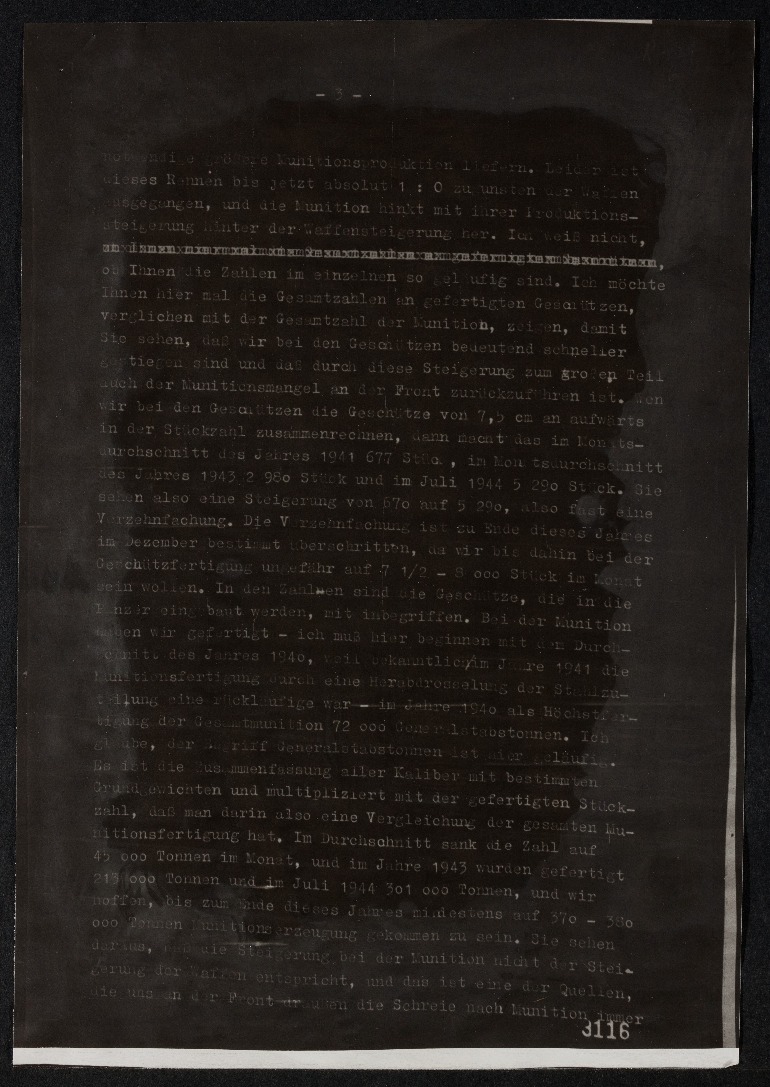 - 3 -
notwendige größere Munitionsproduktion liefern. Leider ist
dieses Rennen bis jetzt absolut 1 : 0 zugunsten der Waffen
ausgegangen, und die Munition hinkt mit ihrer Produktions-
steigerung hinter der Waffensteigerung her. Ich weiß nicht,
ob Ihnen die Zahlen im einzelnen so geläufig sind. Ich möchte
Ihnen hier mal die Gesamtzahlen an gefertigten Geschützen,
verglichen mit der Gesamtzahl der Munition, zeigen, damit
Sie sehen, daß wir bei den Geschützen bedeutend schneller
gestiegen sind und daß durch diese Steigerung zum großen Teil
auch der Munitionsmangel an der Front zurückzuführen ist. Wenn
wir bei den Geschützen die Geschütze von 7,5 cm an aufwärts
in der Stückzahl zusammenrechnen, dann macht das im Monats-
durchschnitt des Jahres 1941 677 Stück, im Monatsdurchschnitt
des Jahres 1943 2 980 Stück und im Juli 1944 5 290 Stück. Sie
sehen also eine Steigerung von 670 auf 5 290, also fast eine
Verzehnfachung. Die Verzehnfachung ist zu Ende dieses Jahres
im Dezember bestimmt überschritten, da wir bis dahin bei der
Geschützfertigung ungefähr auf 7 1/2 - 8 000 Stück im Monat
sein wollen. In den Zahlen sind die Geschütze, die in die
Panzer eingebaut werden, mit inbegriffen. Bei der Munition
haben wir gefertigt - ich muß hier beginnen mit dem Durch-
schnitt des Jahres 1940, weil bekanntlich/im Jahre 1941 die
Munitionsfertigung durch eine Herabdrosselung der Stahlzu-
teilung eine rückläufige war - im Jahre 1940 als Höchstfer-
tigung der Gesamtmunition 72 000 Generalstabstonnen. Ich
glaube, der Begriff Generalstabstonnen ist hier geläufig.
Es ist die Zusammenfassung aller Kaliber mit bestimmten
Grundgewichten und multipliziert mit der gefertigten Stück-
zahl, daß man darin also eine Vergleichung der gesamten Mu-
nitionsfertigung hat. Im Durchschnitt sank die Zahl auf
45 000 Tonnen im Monat, und im Jahre 1943 wurden gefertigt
213 000 Tonnen und im Juli 1944 301 000 Tonnen, und wir
hoffen, bis zum Ende dieses Jahres mindestens auf 370 - 380
000 Tonnen Munitionserzeugung gekommen zu sein. Sie sehen
daraus, daß die Steigerung bei der Munition nicht der Stei-
gerung der Waffen entspricht, und das ist eine der Quellen,
die uns an der Front draußen die Schreie nach Munition immer
3116